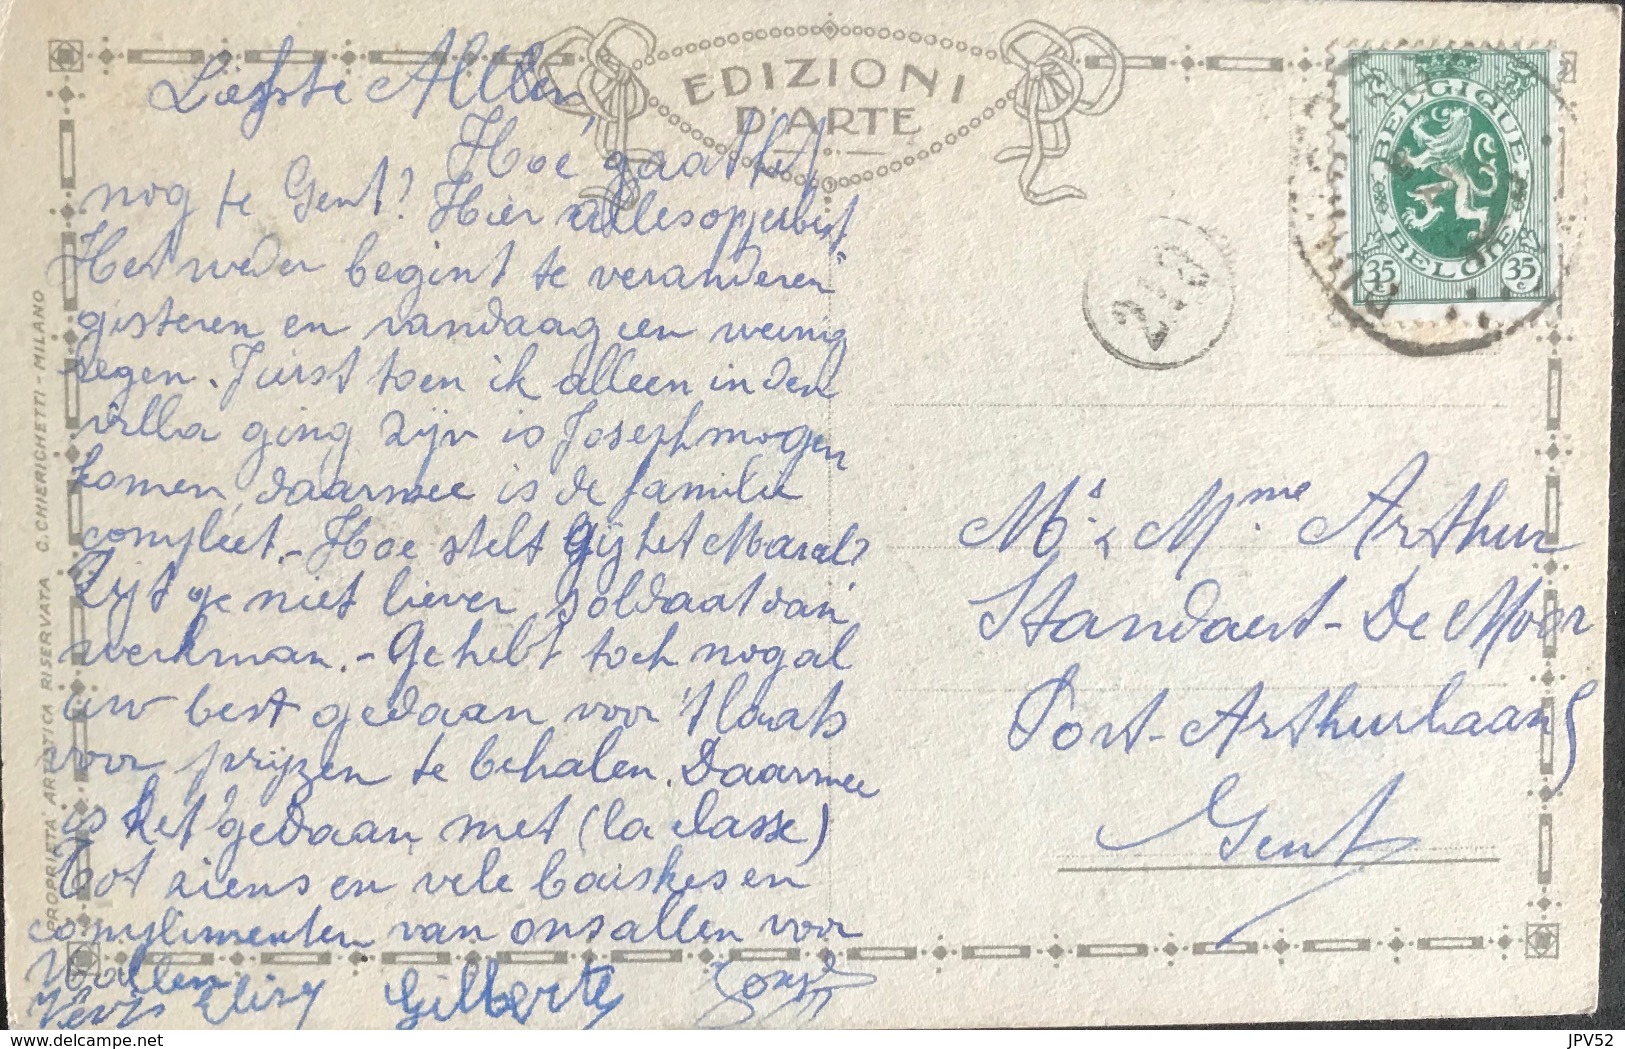 EDIZIONI
D'ARTE
Liefste Allen,
Hoe gaat het
nog te Gent? Hier alles opperbest.
Het weder begint te veranderen
gisteren en vandaag een weinig
regen. Juist toen ik alleen in den
villa ging zijn is Joseph mogen
komen, daarmee is de familie
compleet. - Hoe stelt Gij het Maral?
Zijt ge niet liever soldaat dan
werkman. - Ge hebt toch nogal
uw best gedaan voor 't laats
voor prijzen te behalen. Daarmee
is het gedaan met (la classe)
Tot ziens en vele baiskes en
complimenten van ons allen voor
U allen
Elisy Gilberte
BELGIQUE
BELGIË
35 c 35 c
210
Mr & Mme Arthur
Standaert - De Moor
Port-Arthurlaan
Gent
PROPRIETA' ARTISTICA RISERVATA G. CHERICHETTI - MILANO
www.delcampe.net
JPV52